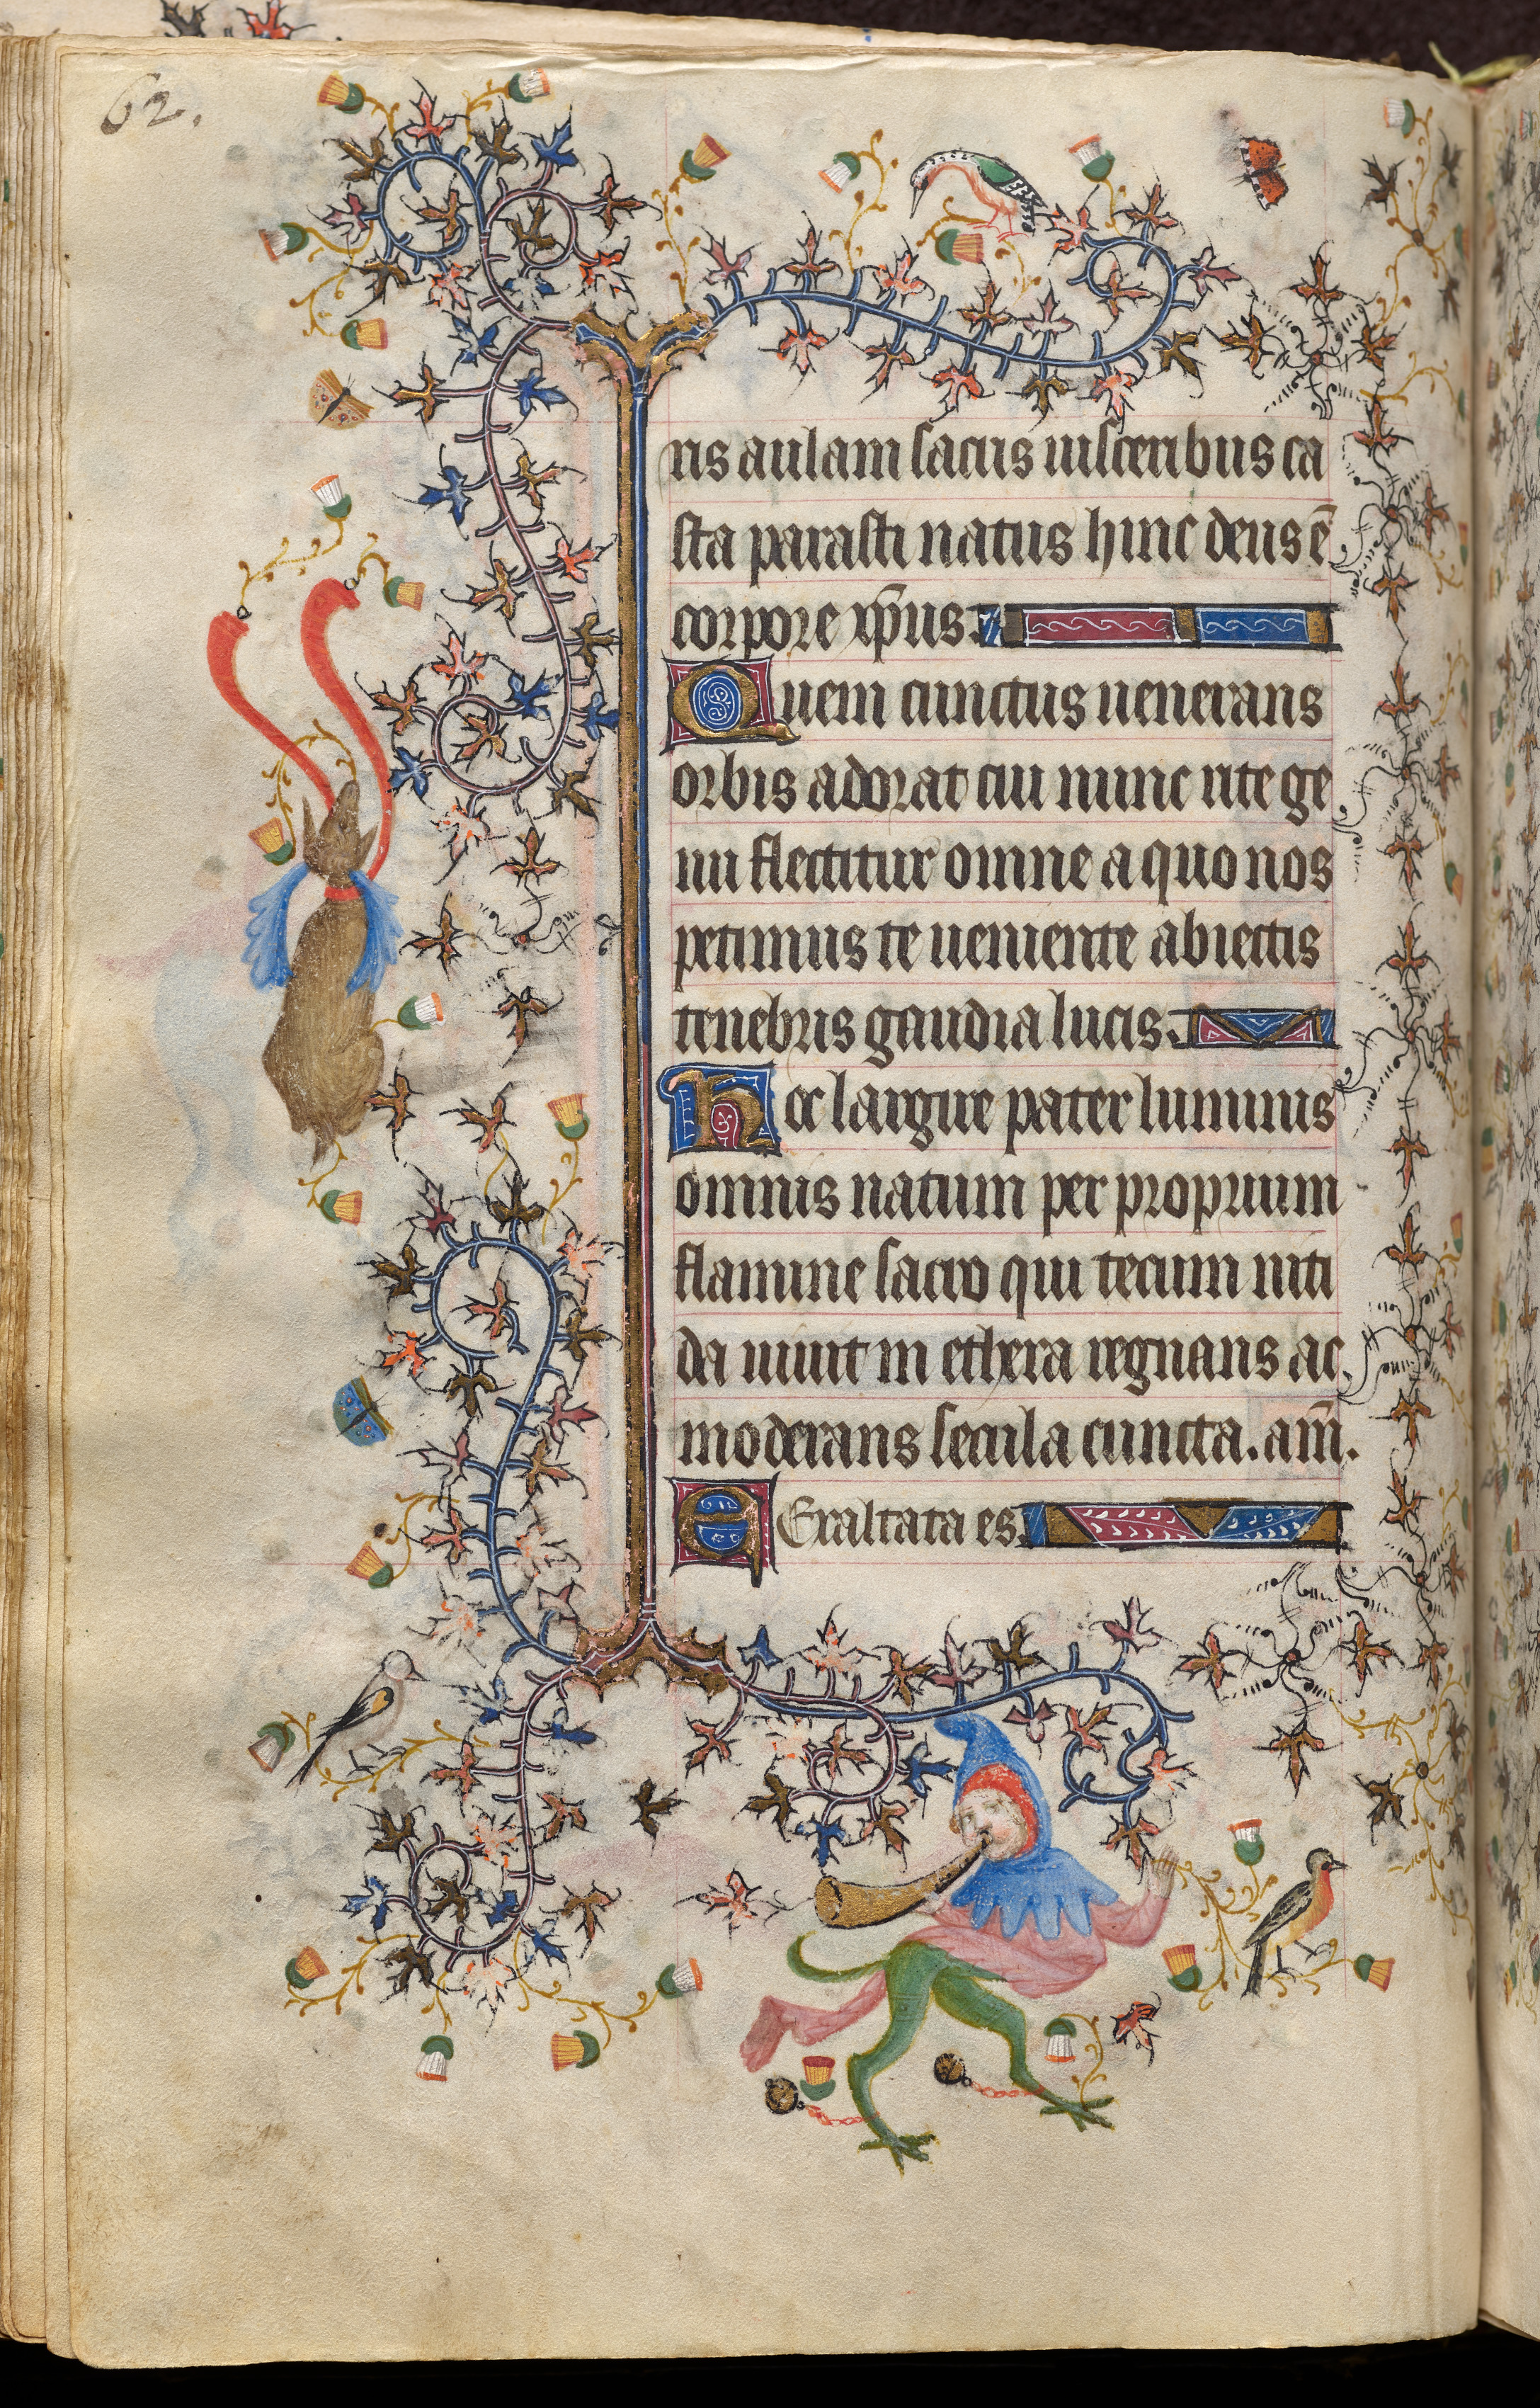 62.
ris aulam sacris uisceribus ca
sta parasti natus hinc deus ē
corpore xp̄us.
Quem cunctus uenerans
orbis adorat cui nunc rite ge
nu flectitur omne a quo nos
petimus te ueniente abiectis
tenebris gaudia lucis.
Hoc largire pater luminis
omnis natum per proprium
flamine sacro qui tecum niti
da uiuit in ethera regnans ac
moderans secula cuncta. am̄.
Exaltata es.